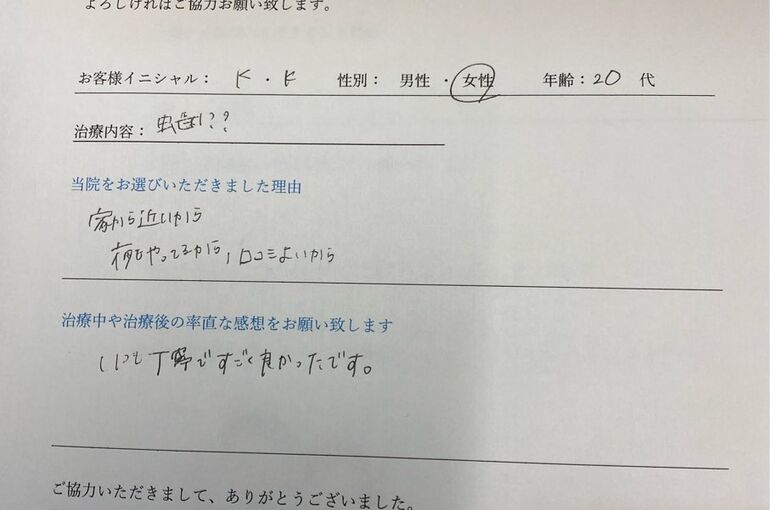 よろしければご協力お願い致します。
お客様イニシャル： K ・ K 性別： 男性 ・ 女性 年齢：20 代
治療内容： 虫歯??
当院をお選びいただきました理由
家から近いから
夜もやってるから，口コミよいから
治療中や治療後の率直な感想をお願い致します
いつも丁寧ですごく良かったです。
ご協力いただきまして、ありがとうございました。